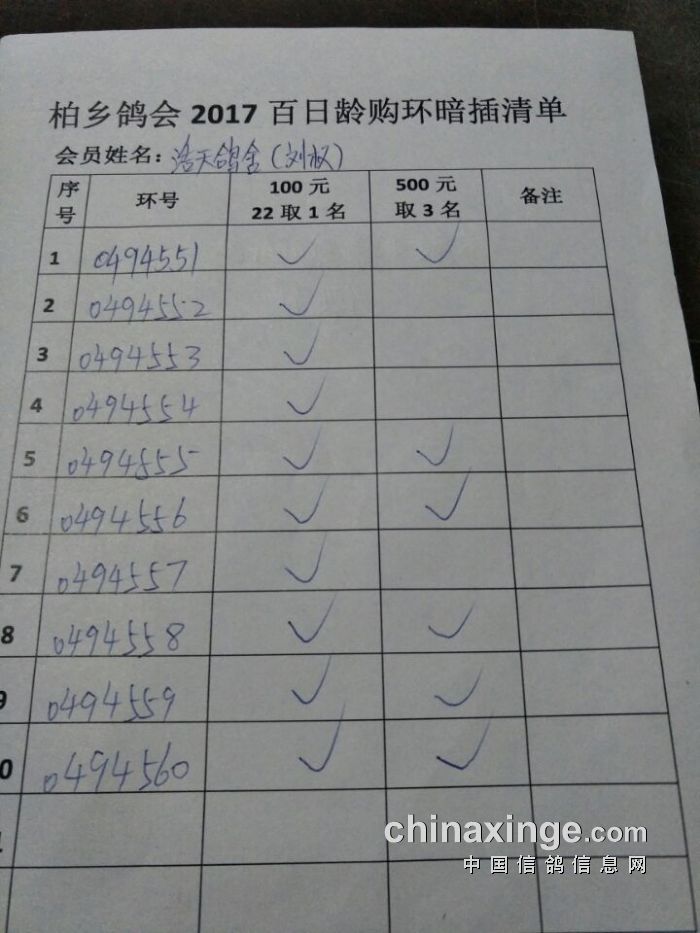 柏乡鸽会 2017 百日龄购环暗插清单
会员姓名：浩天鸽舍（刘权）
序号 环号 100 元 22 取 1 名 500 元 取 3 名 备注
1 0494551 ✓ ✓
2 0494552 ✓
3 0494553 ✓
4 0494554 ✓
5 0494555 ✓ ✓
6 0494556 ✓ ✓
7 0494557 ✓
8 0494558 ✓ ✓
9 0494559 ✓ ✓
0 0494560 ✓ ✓
chinaxinge.com
中国信鸽信息网